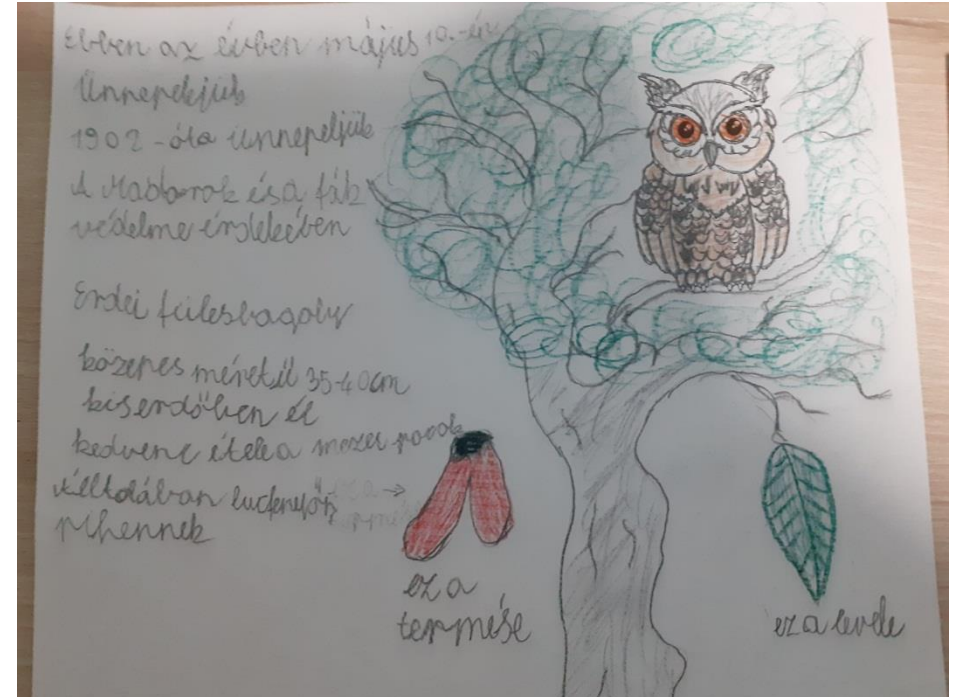 Ebben az évben május 10.-én
Ünnepeljük
1902-óta ünnepeljük
A Madarak és a fák
védelme érdekében
Erdei fülesbagoly
közepes méretű 35-40cm
kis erdőben él
kedvenc étele a mezei pocok
Általában lucfenyőn
pihennek
ez a
termése
ez a levele